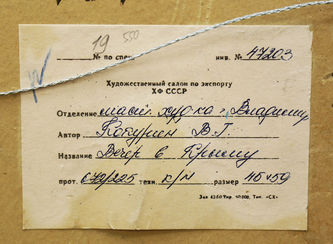 19 550
№ по спец. инв. № 47203
Художественный салон по экспорту
ХФ СССР
Отделение маст. худ-ка г. Владимир
Автор Кокурин В.Г.
Название Вечер в Крыму
прот. 672/225 техн. к/м размер 45×59
Зак 6260 Тир. 10.000, Тип. «СХ»